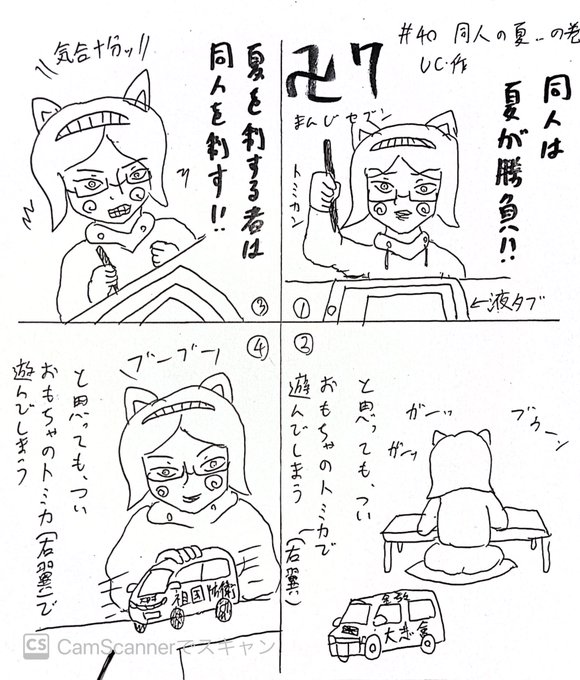 #40 同人の夏‥の巻
UC・作
卍7
まんじセブン
同人は
夏が勝負!!
トミカン
←液タブ
①
②
ガーッ
ガンッ
ブウーン
と思っても、つい
おもちゃのトミカで
遊んでしまう
(右翼)
夏を制する者は
同人を制す!!
気合十分ッ!!
③
④
ブーブー
と思っても、つい
おもちゃのトミカ(右翼)で
遊んでしまう
祖国防衛
CS CamScannerでスキャン